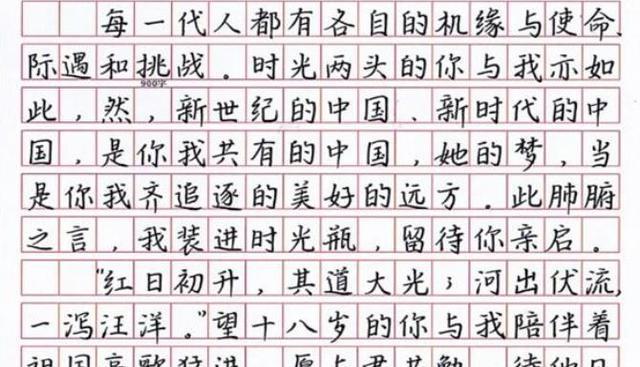 每一代人都有各自的机缘与使命、
际遇和挑战。时光两头的你与我亦如
900字
此，然，新世纪的中国、新时代的中
国，是你我共有的中国，她的梦，当
是你我齐追逐的美好的远方。此肺腑
之言，我装进时光瓶，留待你亲启。
"红日初升，其道大光；河出伏流，
一泻汪洋。"望十八岁的你与我陪伴着
祖国高歌猛进，愿与君共勉，待他日